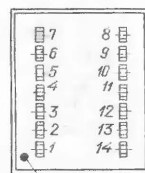 7 8
6 9
5 10
4 11
3 12
2 13
1 14